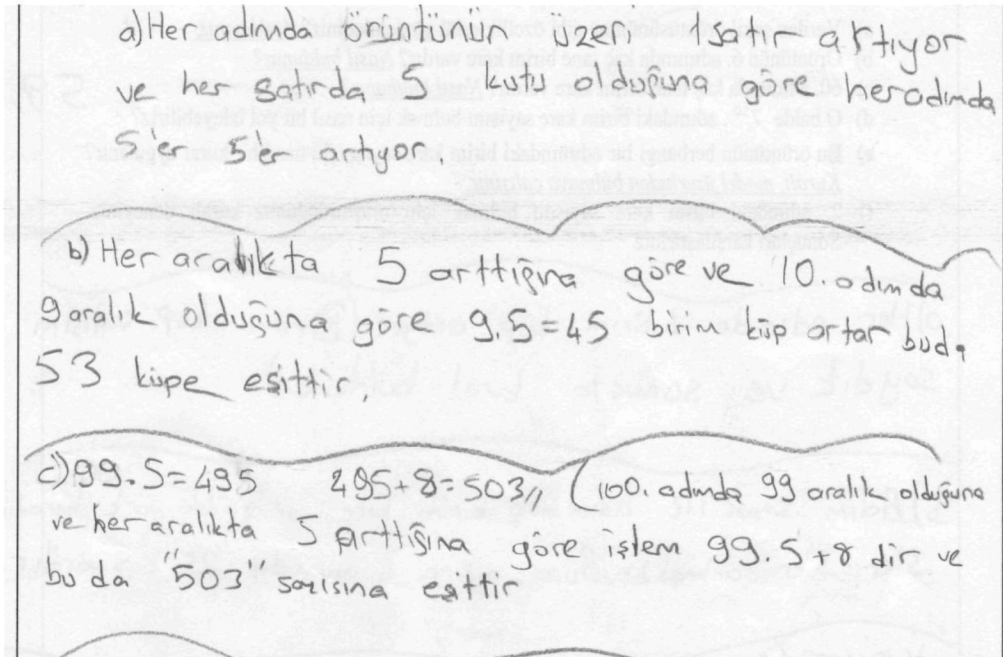 a) Her adımda bütünlük üzerine 1 satır artıyor
ve her satırda 5 kutu olduğuna göre her adımda
5'er 5'er artıyor.
b) Her aralıkta 5 arttığına göre ve 10. adımda
9 aralık olduğuna göre 9.5=45 birim küp artar bu da
53 küpe eşittir.
c) 99.5=495 495+8=503// (100. adımda 99 aralık olduğuna
ve her aralıkta 5 arttığına göre işlem 99.5+8 dir ve
bu da "503" sayısına eşittir